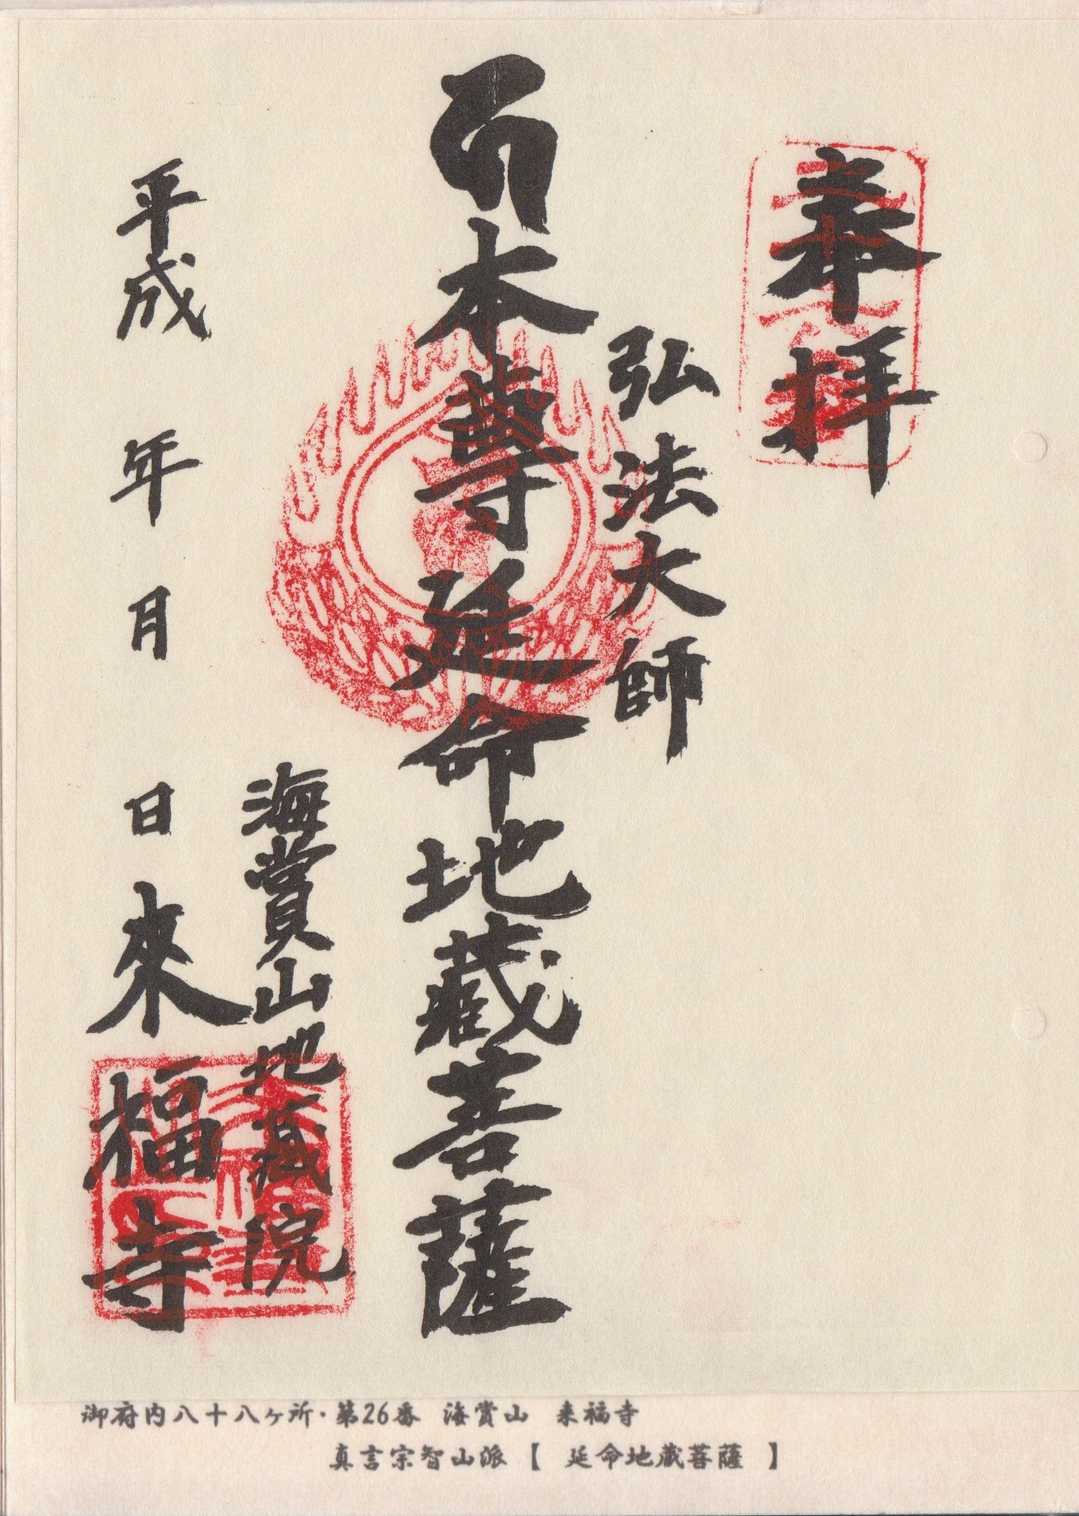 奉拝
弘法大師
本尊延命地蔵菩薩
海賞山地蔵院
平成 年 月 日 來福寺
御府内八十八ヶ所・第26番 海賞山 来福寺
真言宗智山派 【 延命地蔵菩薩 】